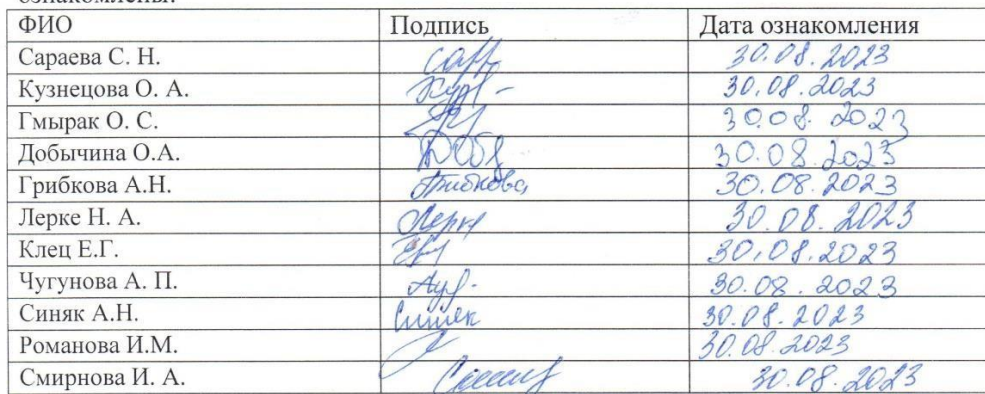 ознакомлены.
ФИО Подпись Дата ознакомления
Сараева С. Н. 30.08.2023
Кузнецова О. А. 30.08.2023
Гмырак О. С. 30.08. 2023
Добычина О.А. 30.08.2023
Грибкова А.Н. Грибкова 30.08.2023
Лерке Н. А. Лерке 30.08.2023
Клец Е.Г. 30.08.2023
Чугунова А. П. 30.08.2023
Синяк А.Н. Синяк 30.08.2023
Романова И.М. 30.08.2023
Смирнова И. А. 30.08.2023